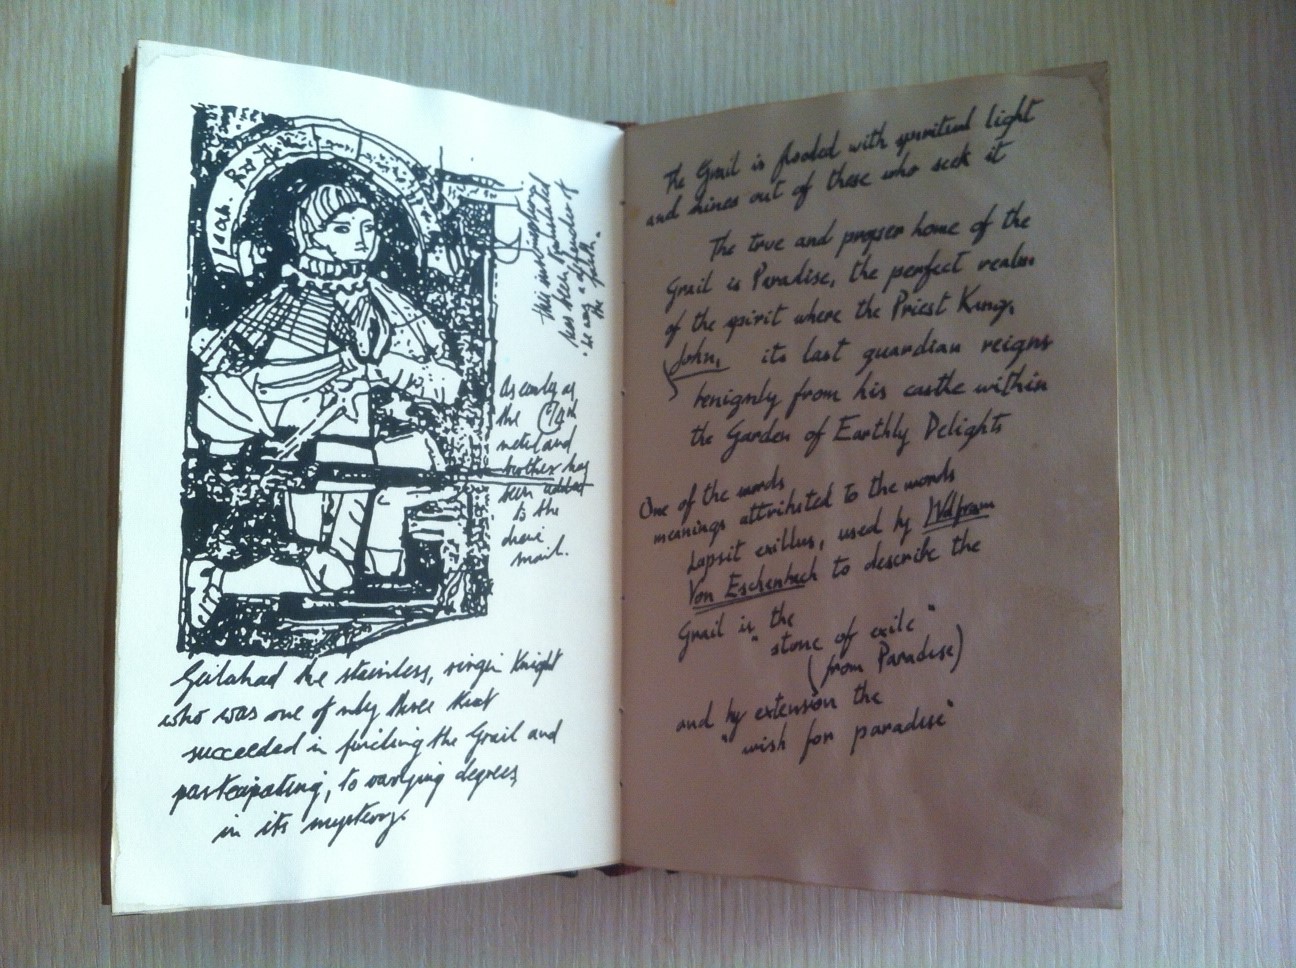 This inscription
has been translated
"he was a defender of
the faith."
As early as
the
metal and
brother has
been added
to the
chain
mail.
Galahad the stainless, virgin Knight
who was one of only three that
succeeded in finding the Grail and
partcipating, to varying degrees,
in its mystery.
The Grail is flooded with spiritual light
and shines out of these who seek it
The true and proper home of the
Grail is Paradise, the perfect realm
of the spirit where the Priest King,
John, its last guardian reigns
benignly from his castle within
the Garden of Earthly Delights
One of the words
meanings attributed to the words
Lapsit exillus, used by Wolfram
Von Eschenbach to describe the
Grail is the
"stone of exile"
(from Paradise)
and by extension the
"wish for paradise"